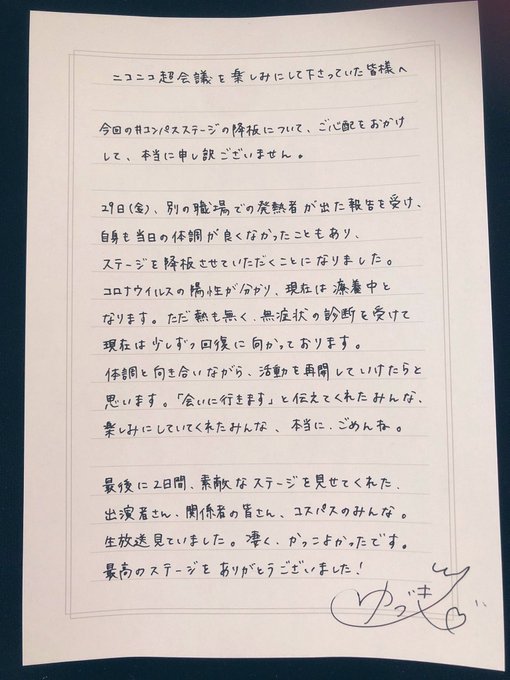 ニコニコ超会議を楽しみにして下さっていた皆様へ
今回の#コンパスステージの降板について、ご心配をおかけ
して、本当に申し訳ございません。
29日(金)、別の職場での発熱者が出た報告を受け、
自身も当日の体調が良くなかったこともあり、
ステージを降板させていただくことになりました。
コロナウイルスの陽性が分かり、現在は療養中と
なります。ただ熱も無く、無症状の診断を受けて
現在は少しずつ回復に向かっております。
体調と向き合いながら、活動を再開していけたらと
思います。「会いに行きます」と伝えてくれたみんな、
楽しみにしていてくれたみんな、本当に、ごめんね。
最後に2日間、素敵なステージを見せてくれた、
出演者さん、関係者の皆さん、コスパスのみんな。
生放送見ていました。凄く、かっこよかったです。
最高のステージをありがとうございました!
ゆづき